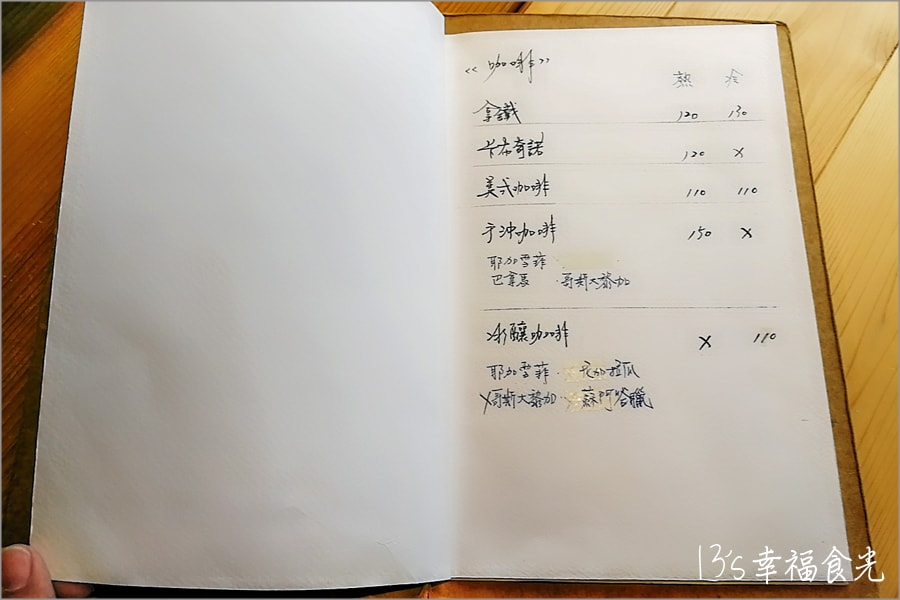 《咖啡》
熱 冷
拿鐵 120 130
卡布奇諾 120 X
美式咖啡 110 110
手沖咖啡 150 X
耶加雪菲
巴拿馬 · 哥斯大黎加
冰釀咖啡 X 110
耶加雪菲 · 尼加拉瓜
X哥斯大黎加 · 蘇門答臘
13's幸福食光